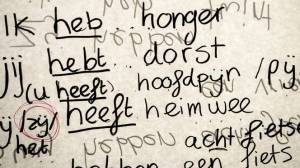 Ik heb honger
jij hebt dorst
(u heeft) hoofdpijn /pij
ij /zij/ heeft heimwee
het acht fiets
een fiets